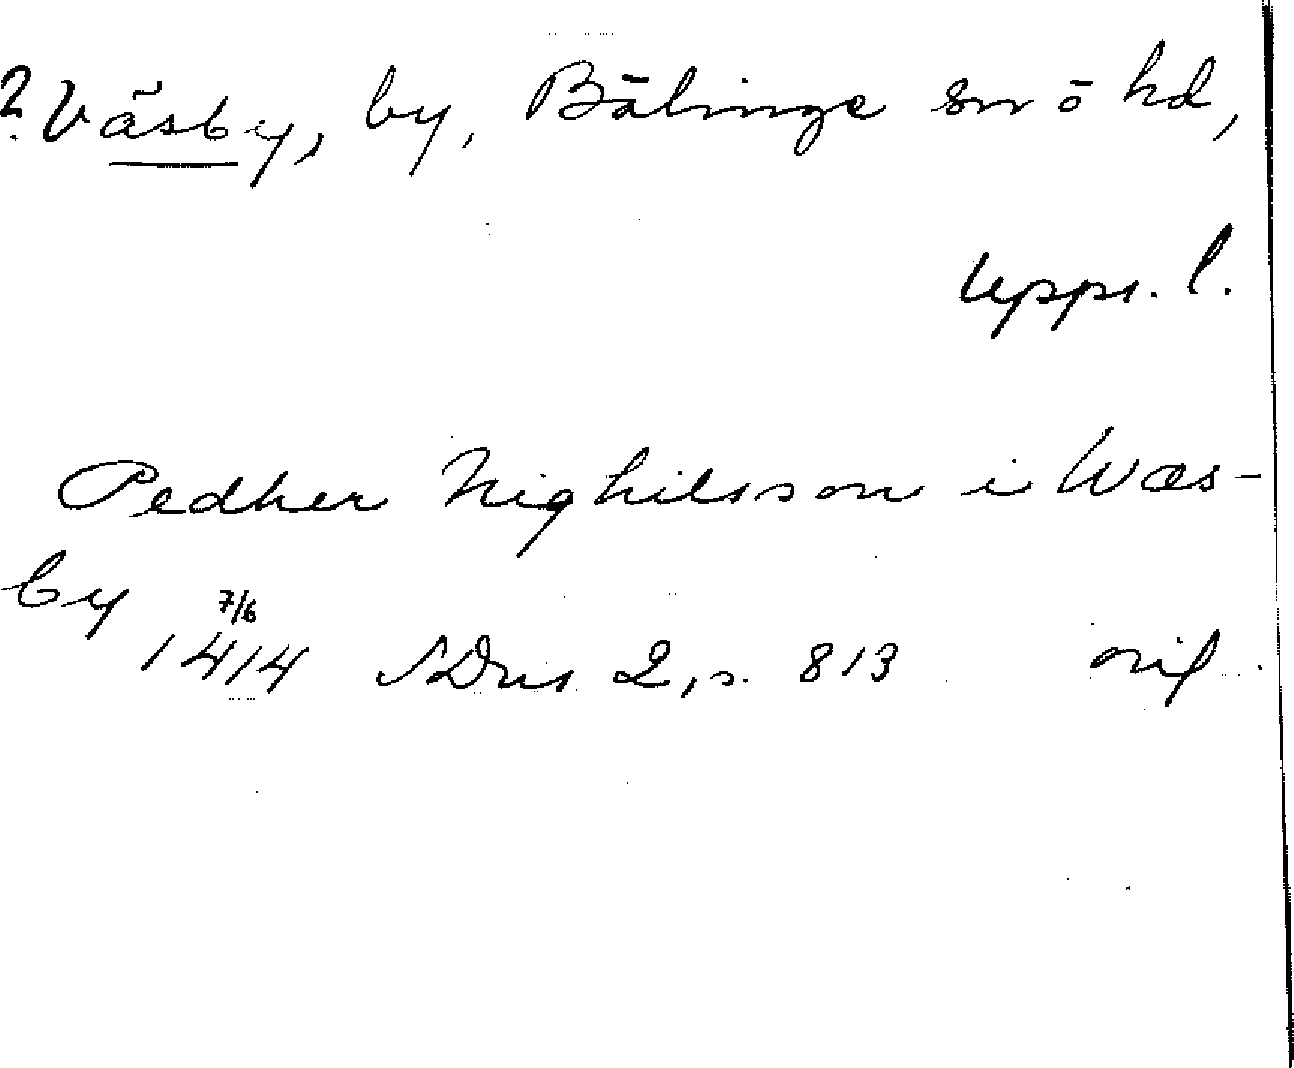 ? Väsby, by, Bälinge sn o hd,
Upps. l.
Pedher Nighilsson i Wæs-
by
7/6
1414 SDns 2, s. 813 orig